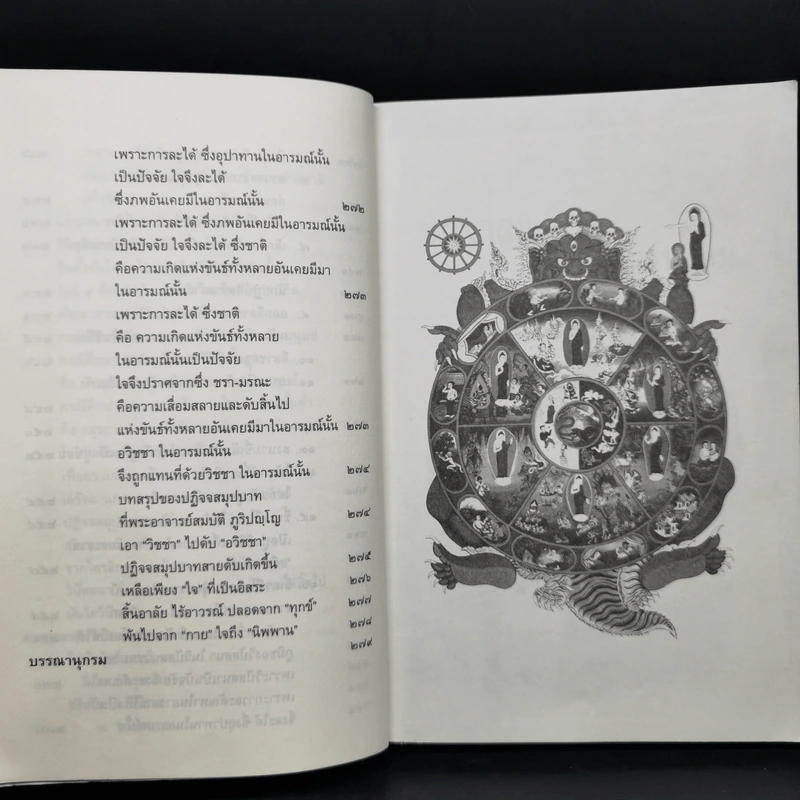 เพราะการละได้ ซึ่งอุปาทานในอารมณ์นั้น
เป็นปัจจัย ใจจึงละได้
ซึ่งภพอันเคยมีในอารมณ์นั้น ๒๗๒
เพราะการละได้ ซึ่งภพอันเคยมีในอารมณ์นั้น
เป็นปัจจัย ใจจึงละได้ ซึ่งชาติ
คือความเกิดแห่งขันธ์ทั้งหลายอันเคยมีมา
ในอารมณ์นั้น ๒๗๓
เพราะการละได้ ซึ่งชาติ
คือ ความเกิดแห่งขันธ์ทั้งหลาย
ในอารมณ์นั้นเป็นปัจจัย
ใจจึงปราศจากซึ่ง ชรา-มรณะ
คือความเสื่อมสลายและดับสิ้นไป
แห่งขันธ์ทั้งหลายอันเคยมีมาในอารมณ์นั้น ๒๗๓
อวิชชา ในอารมณ์นั้น
จึงถูกแทนที่ด้วยวิชชา ในอารมณ์นั้น ๒๗๔
บทสรุปของปฏิจจสมุปบาท
ที่พระอาจารย์สมบัติ ภูริปญฺโญ ๒๗๔
เอา “วิชชา” ไปดับ “อวิชชา”
ปฏิจจสมุปบาทสายดับเกิดขึ้น ๒๗๕
เหลือเพียง “ใจ” ที่เป็นอิสระ ๒๗๖
สิ้นอาลัย ไร้อาวรณ์ ปลอดจาก “ทุกข์” ๒๗๗
พ้นไปจาก “กาย” ใจถึง “นิพพาน” ๒๗๘
บรรณานุกรม ๒๗๙